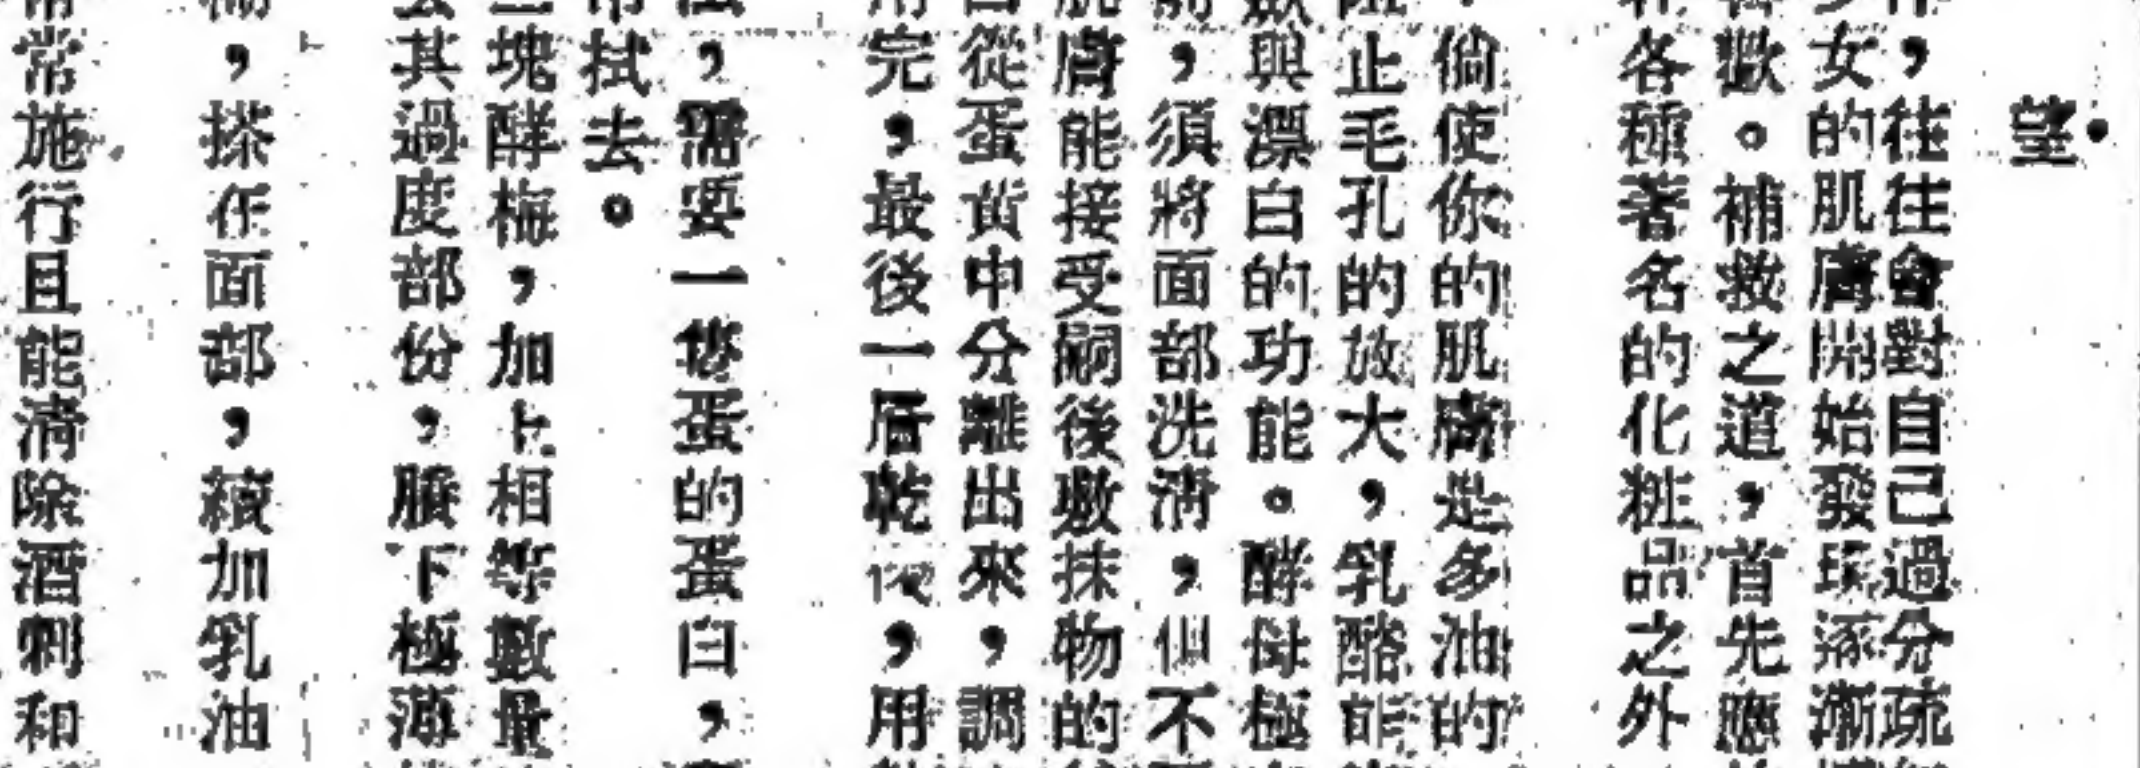 望•
，往往會對自己過分疏
女的肌膚開始發現逐漸
歉。補救之道，首先應
各種著名的化粧品之外
倘使你的肌膚是多油的
止毛孔的放大，乳酪能
與漂白的功能。酵母極
，須將面部洗清，但不
膚能接受嗣後敷抹物的
從蛋黃中分離出來，調
完，最後一層乾後，用
，需要一隻蛋的蛋白，
拭去。
塊酵梅，加上相等數量
其過度部份，賸下極薄
，搽在面部，續加乳油
常施行且能清除酒刺和